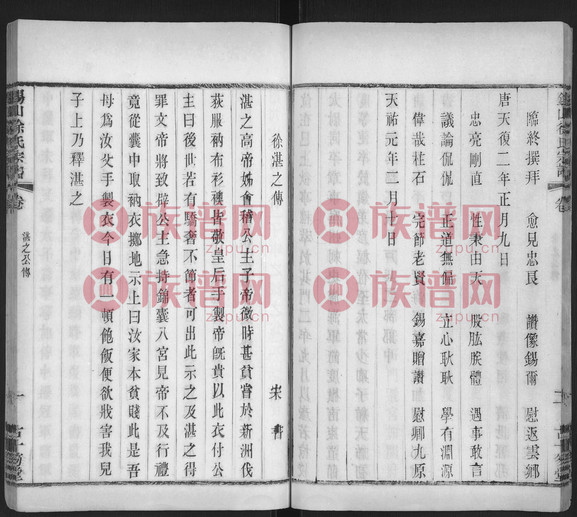 臨終撰拜　愈見忠良　讚像錫爾　慰返雲鄉
唐天復二年正月九日
忠亮剛直　性秉由天　股肱朕體　遇事敢言
議論侃侃　正道無偏　立心耿耿　學有淵源
偉哉柱石　完節老賢　錫嘉贈讚　慰卿九原
天祐元年二月十日
徐湛之傳　宋書
湛之高帝姊會稽公主子帝微時甚貧嘗於新洲伐
荻服衲布衫襖皆敬皇后手製帝既貴以此衣付公
主曰後世若有驕奢不節者可出此示之及湛之得
罪文帝將致辟公主急持錦囊入宮見帝不及行禮
竟從囊中取衲衣擲地示上曰汝家本貧賤此是吾
母為汝父手製衣今日有一頓飽飯便欲戕害我兒
子上乃釋湛之
錫山徐氏宗譜　卷
湛之公傳
族谱网
zupu.cn